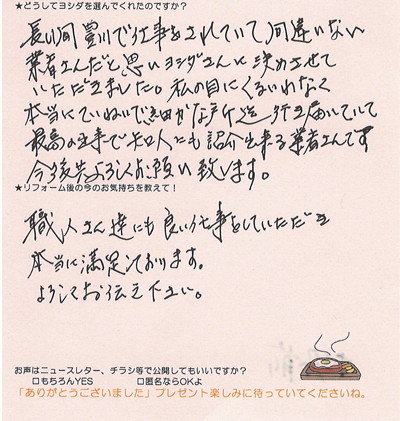 ★どうしてヨシダを選んでくれたのですか？
長い間豊川で仕事をされていて間違いない
業者さんだと思いヨシダさんに決めさせて
いただきました。私の目にくるいわなく
本当にていねいで細かな所迄行き届いていて
最高の仕事で知人にも紹介出来る業者さんです
今後共よろしくお願い致します。
★リフォーム後の今のお気持ちを教えて！
職人さん達にも良い仕事をしていただき
本当に満足しております。
よろしくお伝え下さい。
お声はニュースレター、チラシ等で公開してもいいですか？
□もちろんYES □匿名ならOKよ
「ありがとうございました」プレゼント楽しみに待っていてくださいね。